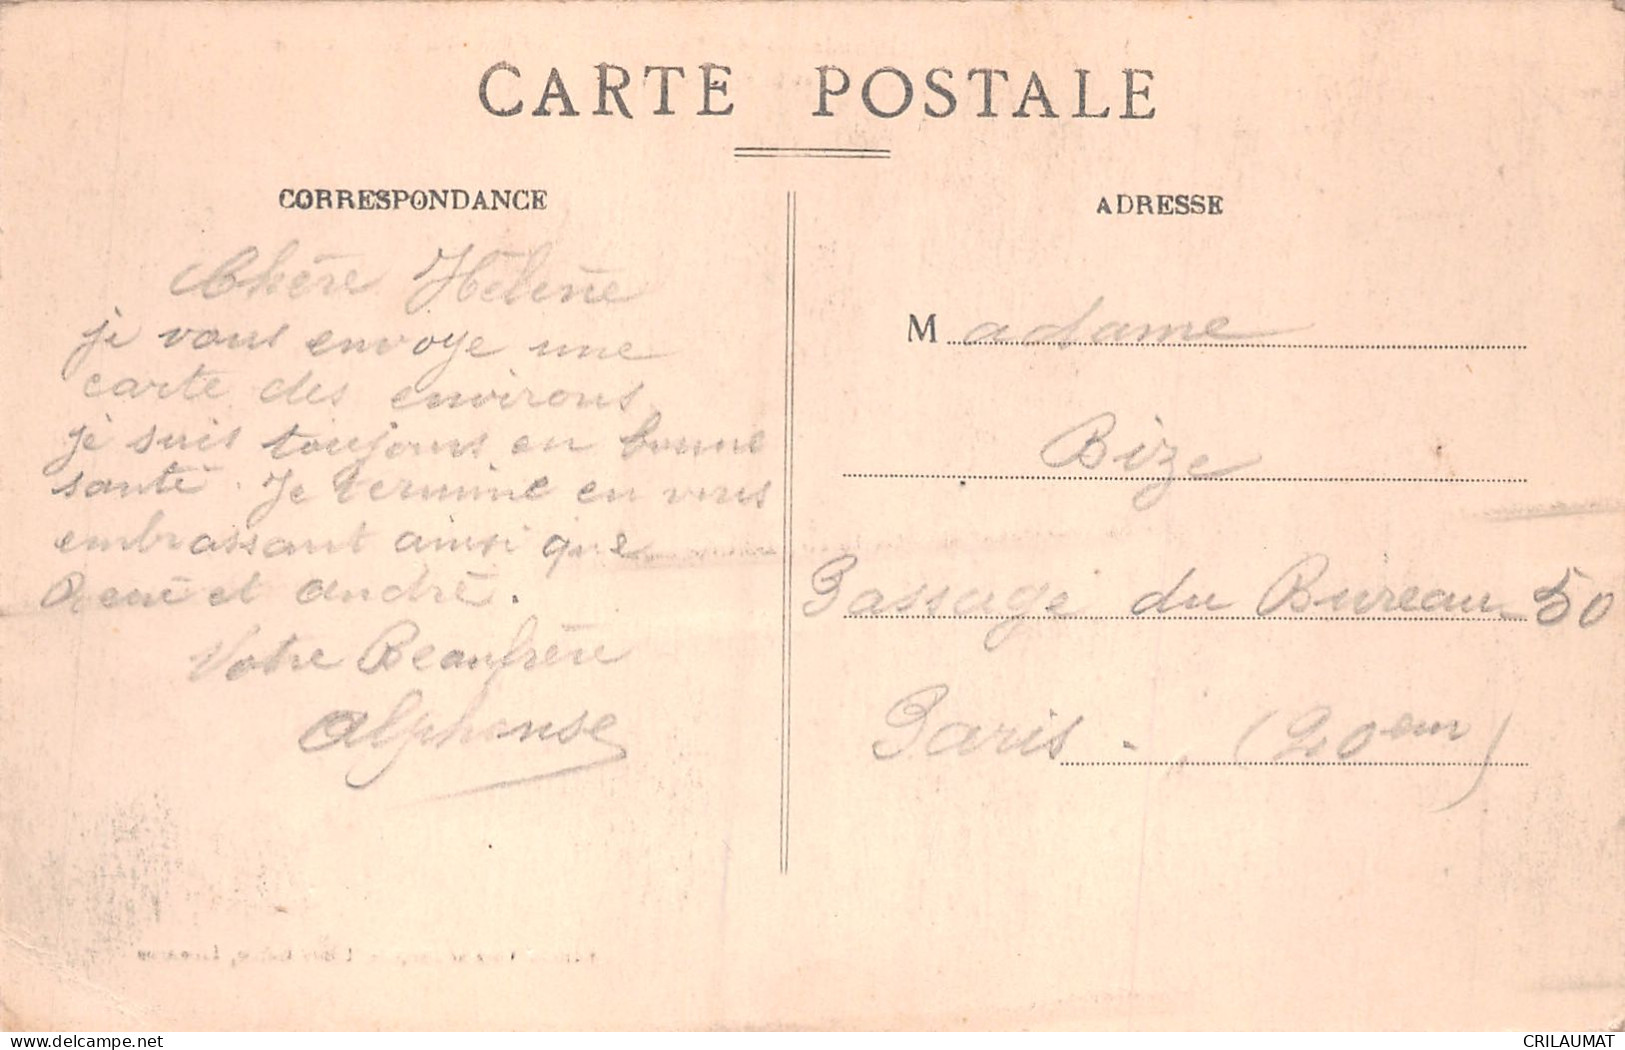 CARTE POSTALE
CORRESPONDANCE
Chère Hélène
je vous envoye une
carte des environs
je suis toujours en bonne
santé. Je termine en vous
embrassant ainsi que
René et André.
Votre Beaufrère
Alphonse
ADRESSE
Madame
Bize
Passage du Bureau 50
Paris - (20em)
delcampe.net
CRILAUMAT